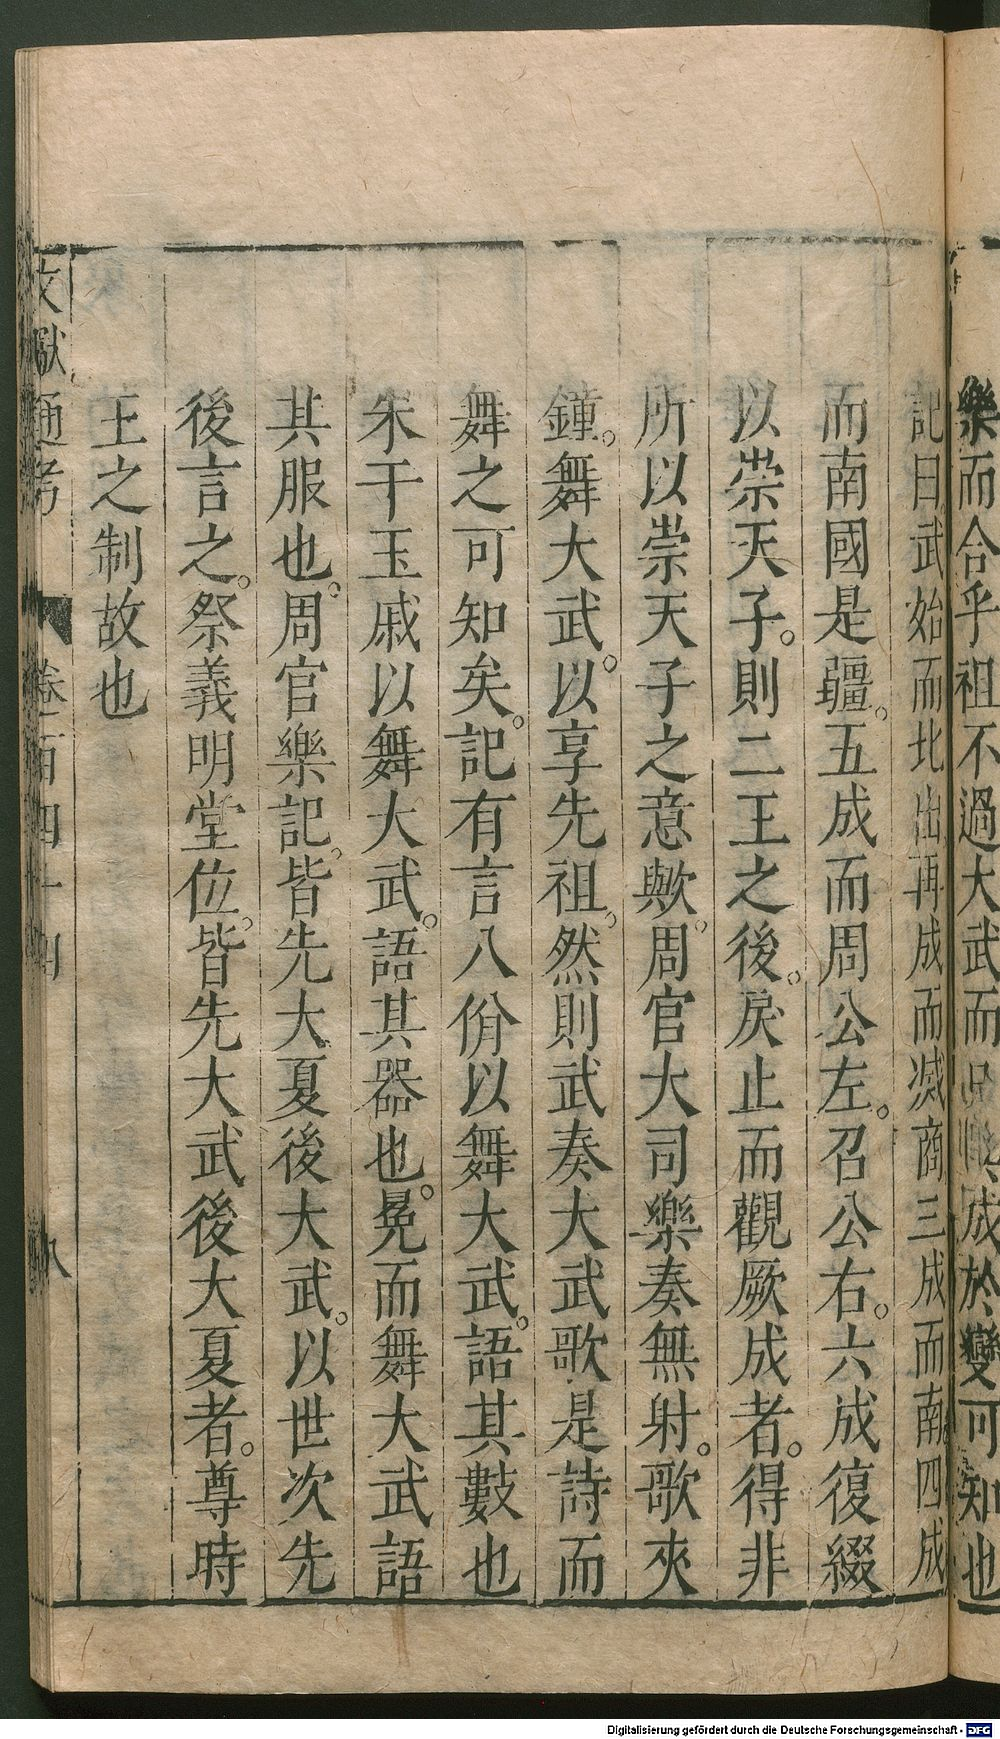 樂而合乎祖不過大武而已。成於變可知也
記曰武始而北出再成而滅商三成而南四成
而南國是疆。五成而周公左。召公右。六成復綴
以崇天子。則二王之後。戾止而觀厥成者。得非
所以崇天子之意歟。周官大司樂奏無射。歌夾
鍾。舞大武。以享先祖。然則武奏大武歌是詩而
舞之可知矣。記有言八佾以舞大武。語其數也
朱干玉戚以舞大武。語其器也。冕而舞大武語
其服也。周官樂記。皆先大夏後大武。以世次先
後言之。祭義明堂位。皆先大武後大夏者。尊時
王之制故也
文獻通考 卷一百四十四 八
Digitalisierung gefördert durch die Deutsche Forschungsgemeinschaft - DFG